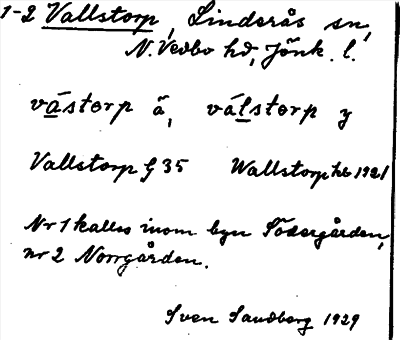 1-2 Vallstorp, Linderås sn,
N. Vedbo hd, Jönk. l.
våstorp ä,válstorp y
Vallstorp G 35 Wallstorp hb 1921
Nr 1 kallas inom byn Södergården,
nr 2 Norrgården.
Sven Sandberg 1929